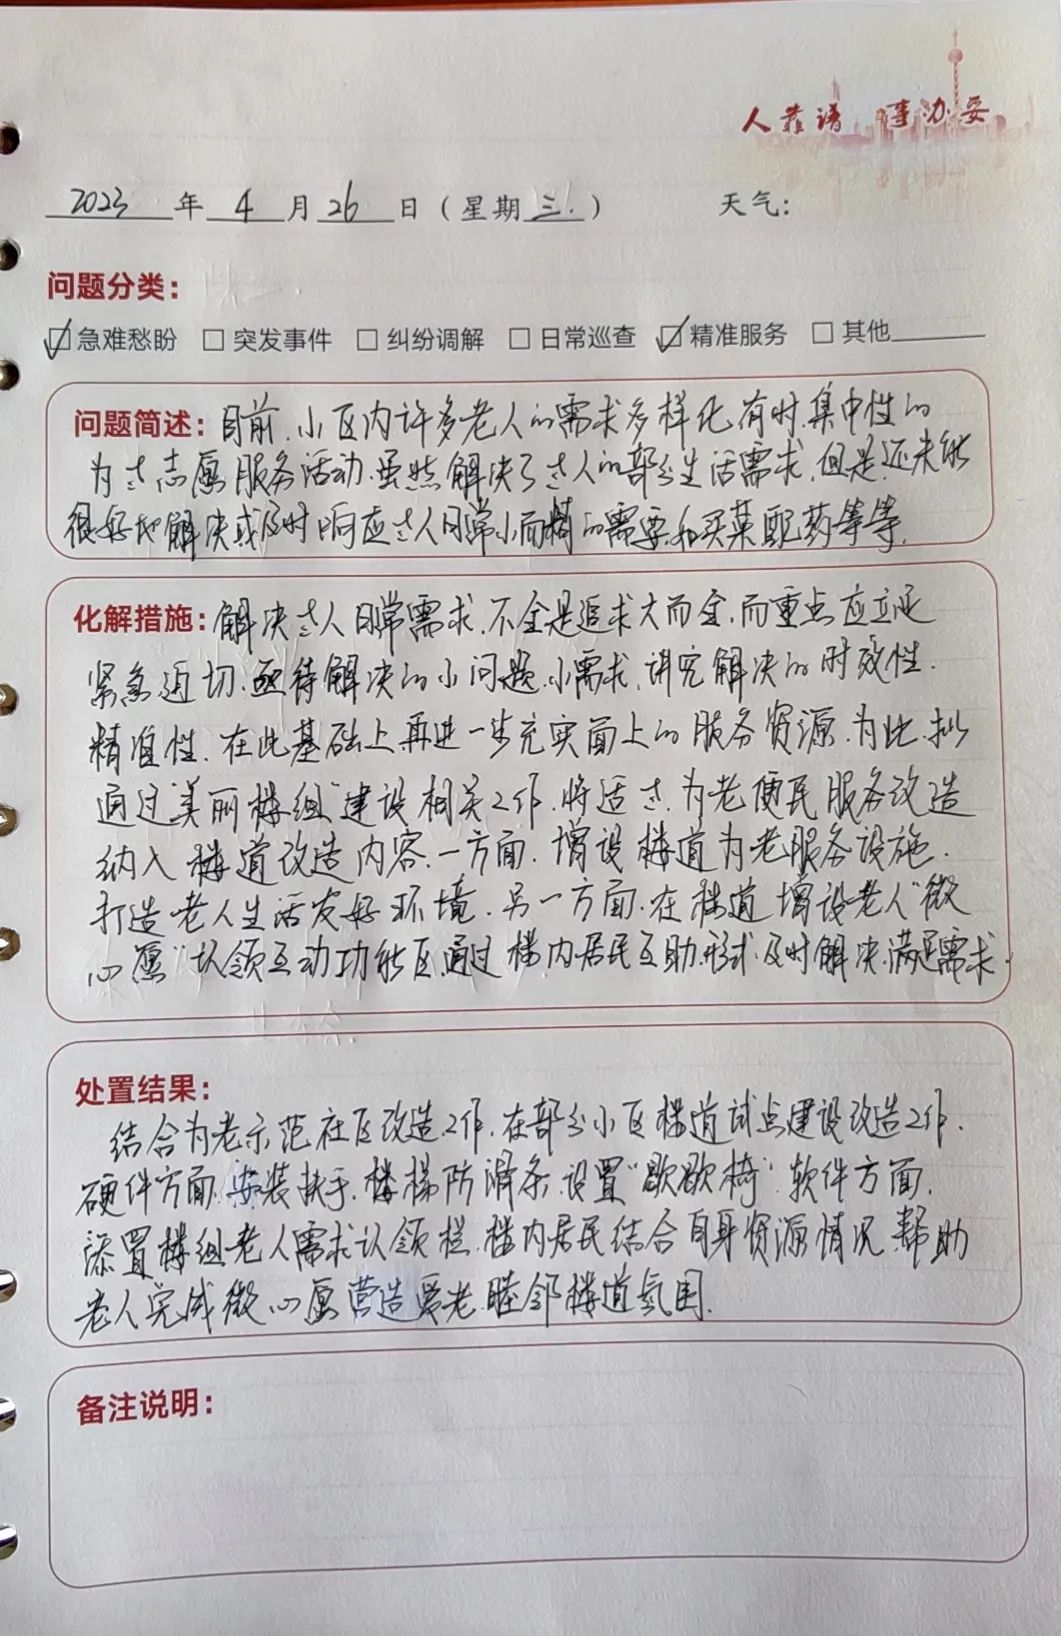 人靠谱 事办妥
2023年4月26日（星期三.） 天气：
问题分类：
☑急难愁盼 □突发事件 □纠纷调解 □日常巡查 ☑精准服务 □其他
问题简述：目前，小区内许多老人的需求多样化，有时，集中性的
为老志愿服务活动，虽然解决了老人的部分生活需求，但是，还未能
很好地解决或及时响应老人日常小而精的需要，如买菜配药等等。
化解措施：解决老人日常需求，不全是追求大而全，而重点应立足
紧急迫切、亟待解决的小问题、小需求，讲究解决的时效性、
精准性，在此基础上再进一步充实面上的服务资源，为此，拟
通过“美丽楼组”建设相关工作，将适老、为老便民服务改造
纳入楼道改造内容，一方面，增设楼道为老服务设施，
打造老人生活友好环境，另一方面，在楼道增设老人“微
心愿”认领互动功能区，通过楼内居民互助形式，及时解决、满足需求。
处置结果：
结合为老示范社区改造工作，在部分小区楼道试点建设改造工作，
硬件方面，安装扶手、楼梯防滑条、设置“歇歇椅”，软件方面，
添置楼组老人需求认领栏，楼内居民结合自身资源情况，帮助
老人完成微心愿，营造爱老、睦邻楼道氛围。
备注说明：